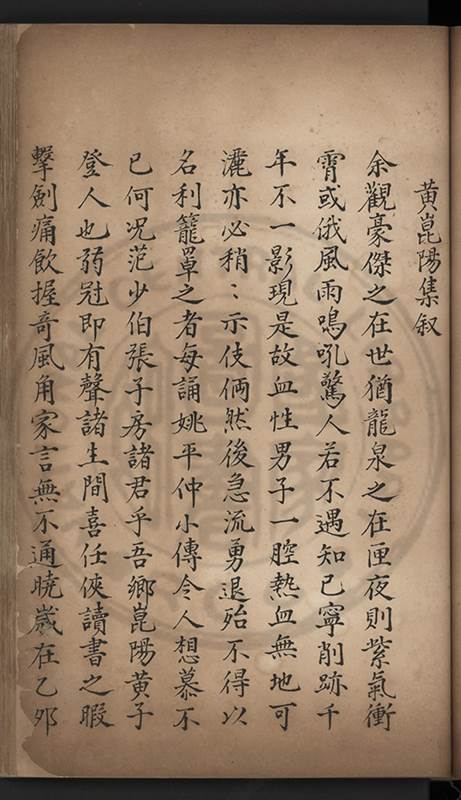 黄崑陽集叙
余觀豪傑之在世猶龍泉之在匣夜則紫氣衝
霄或俄風雨鳴吼驚人若不遇知已寧削跡千
年不一影現是故血性男子一腔熱血無地可
灑亦必稍〻示伎倆然後急流勇退殆不得以
名利籠單之者每誦姚平仲小傳令人想慕不
已何况范少伯張子房諸君乎吾鄉崑陽黄子
登人也弱冠即有聲諸生間喜任俠讀書之暇
擊劍痛飲握奇風角家言無不通曉嵗在乙夘